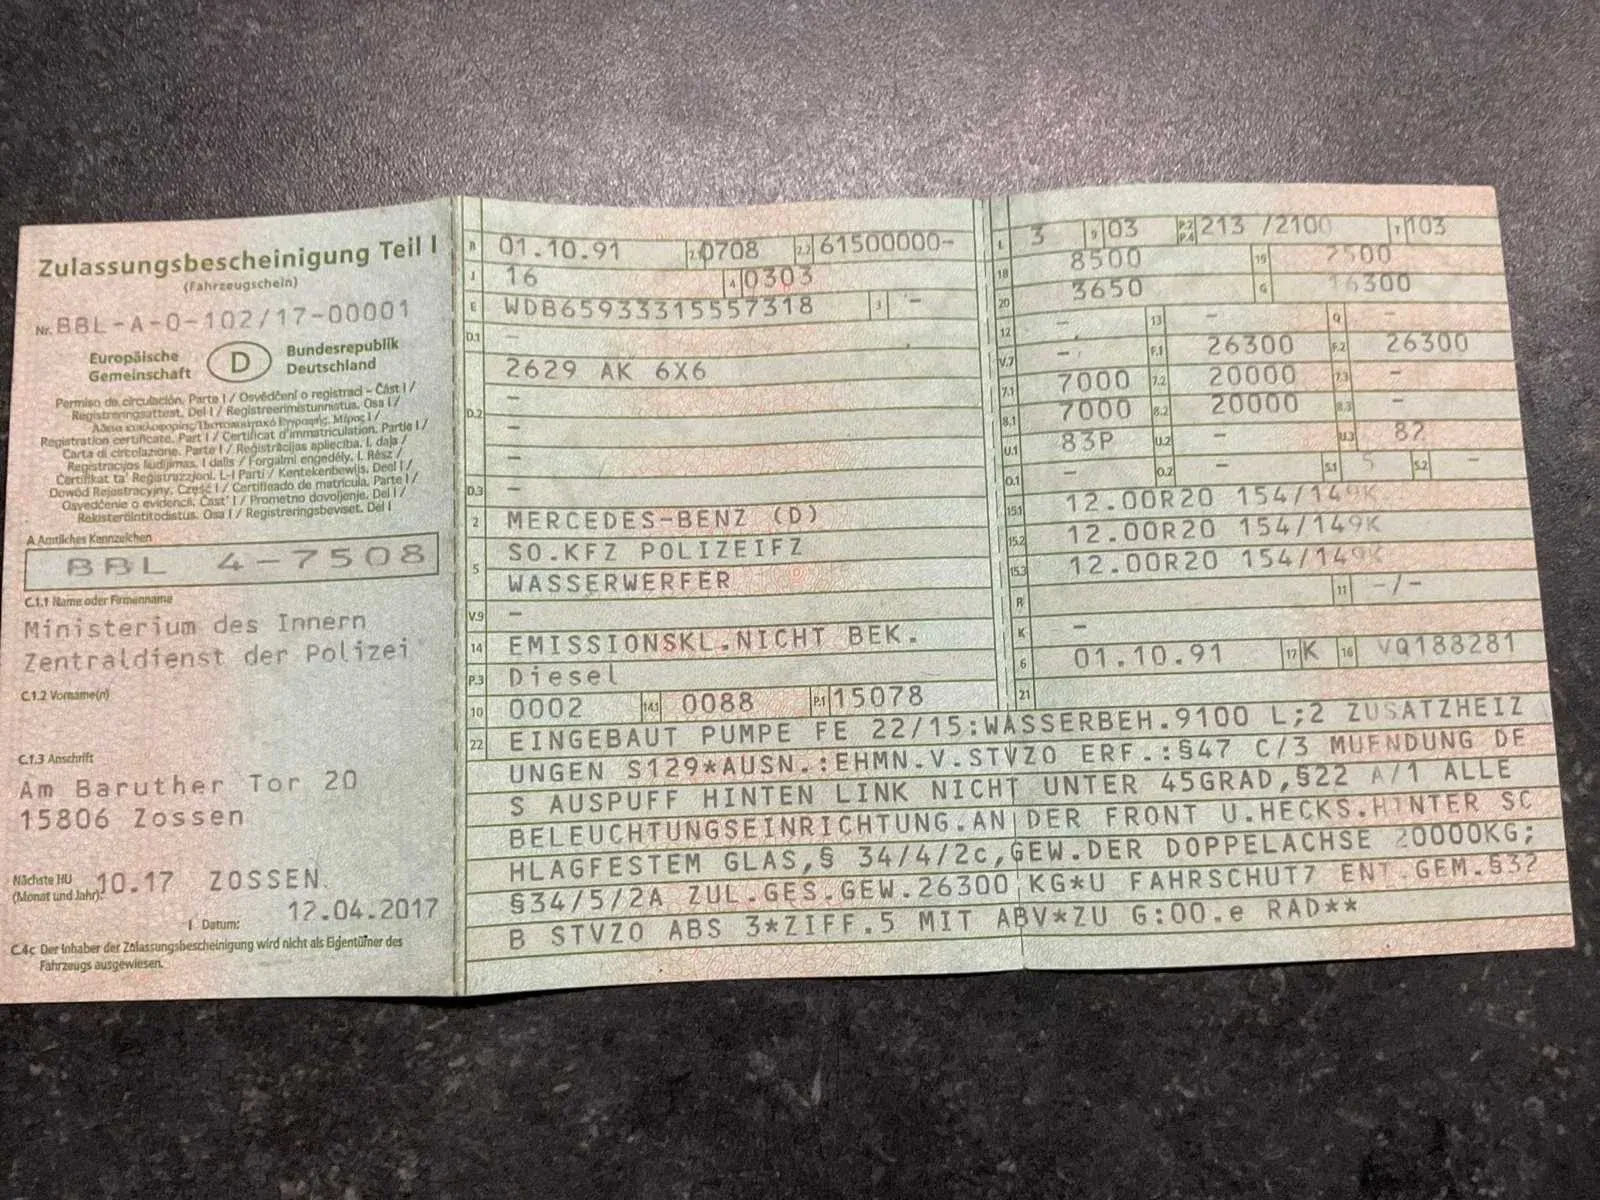 Zulassungsbescheinigung Teil I
(Fahrzeugschein)
Nr. BBL-A-0-102/17-00001
Europäische Gemeinschaft D Bundesrepublik Deutschland
Permiso de circulación, Parte I / Osvědčení o registraci – Část I /
Registreringsattest, Del I / Registreerimistunnistus, Osa I /
Άδεια κυκλοφορίας/Πιστοποιητικό Εγγραφής, Μέρος I /
Registration certificate, Part I / Certificat d'immatriculation, Partie I /
Carta di circolazione, Parte I / Reģistrācijas apliecība, I. daļa /
Registracijos liudijimas, I dalis / Forgalmi engedély, I. Rész /
Ċertifikat ta' Reġistrazzjoni, L-I Parti / Kentekenbewijs, Deel I /
Dowód Rejestracyjny, Część I / Certificado de matrícula, Parte I /
Osvedčenie o evidencii, Časť I / Prometno dovoljenje, Del I /
Rekisteröintitodistus, Osa I / Registreringsbeviset, Del I
A Amtliches Kennzeichen
BBL 4-7508
C.1.1 Name oder Firmenname
Ministerium des Innern
Zentraldienst der Polizei
C.1.2 Vorname(n)
C.1.3 Anschrift
Am Baruther Tor 20
15806 Zossen
Nächste HU
(Monat und Jahr): 10.17 ZOSSEN
I Datum: 12.04.2017
C.4c Der Inhaber der Zulassungsbescheinigung wird nicht als Eigentümer des
Fahrzeugs ausgewiesen.
B 01.10.91 2.1 0708 2.2 61500000-
J 16 4 0303
E WDB65933315557318 3 -
D.1 -
2629 AK 6X6
-
D.2 -
-
D.3 -
2 MERCEDES-BENZ (D)
5 SO.KFZ POLIZEIFZ
WASSERWERFER
V.9 -
14 EMISSIONSKL.NICHT BEK.
P.3 Diesel
10 0002 14.1 0088 P.1 15078
L 3 9 03 P.2 P.4 213 /2100 T 103
18 8500 19 2500
20 3650 G 16300
12 - 13 - Q -
V.7 - F.1 26300 F.2 26300
7.1 7000 7.2 20000 7.3 -
8.1 7000 8.2 20000 8.3 -
U.1 83P U.2 - U.3 82
O.1 - O.2 - S.1 5 S.2 -
15.1 12.00R20 154/149K
15.2 12.00R20 154/149K
15.3 12.00R20 154/149K
R 11 -/-
K -
6 01.10.91 17 K 16 VQ188281
21
22 EINGEBAUT PUMPE FE 22/15:WASSERBEH.9100 L;2 ZUSATZHEIZ
UNGEN S129*AUSN.:EHMN.V.STVZO ERF.:§47 C/3 MUENDUNG DE
S AUSPUFF HINTEN LINK NICHT UNTER 45GRAD,§22 A/1 ALLE
BELEUCHTUNGSEINRICHTUNG.AN DER FRONT U.HECKS.HINTER SC
HLAGFESTEM GLAS,§ 34/4/2c,GEW.DER DOPPELACHSE 20000KG;
§34/5/2A ZUL.GES.GEW.26300 KG*U FAHRSCHUTZ ENT.GEM.§32
B STVZO ABS 3*ZIFF.5 MIT ABV*ZU G:00.e RAD**